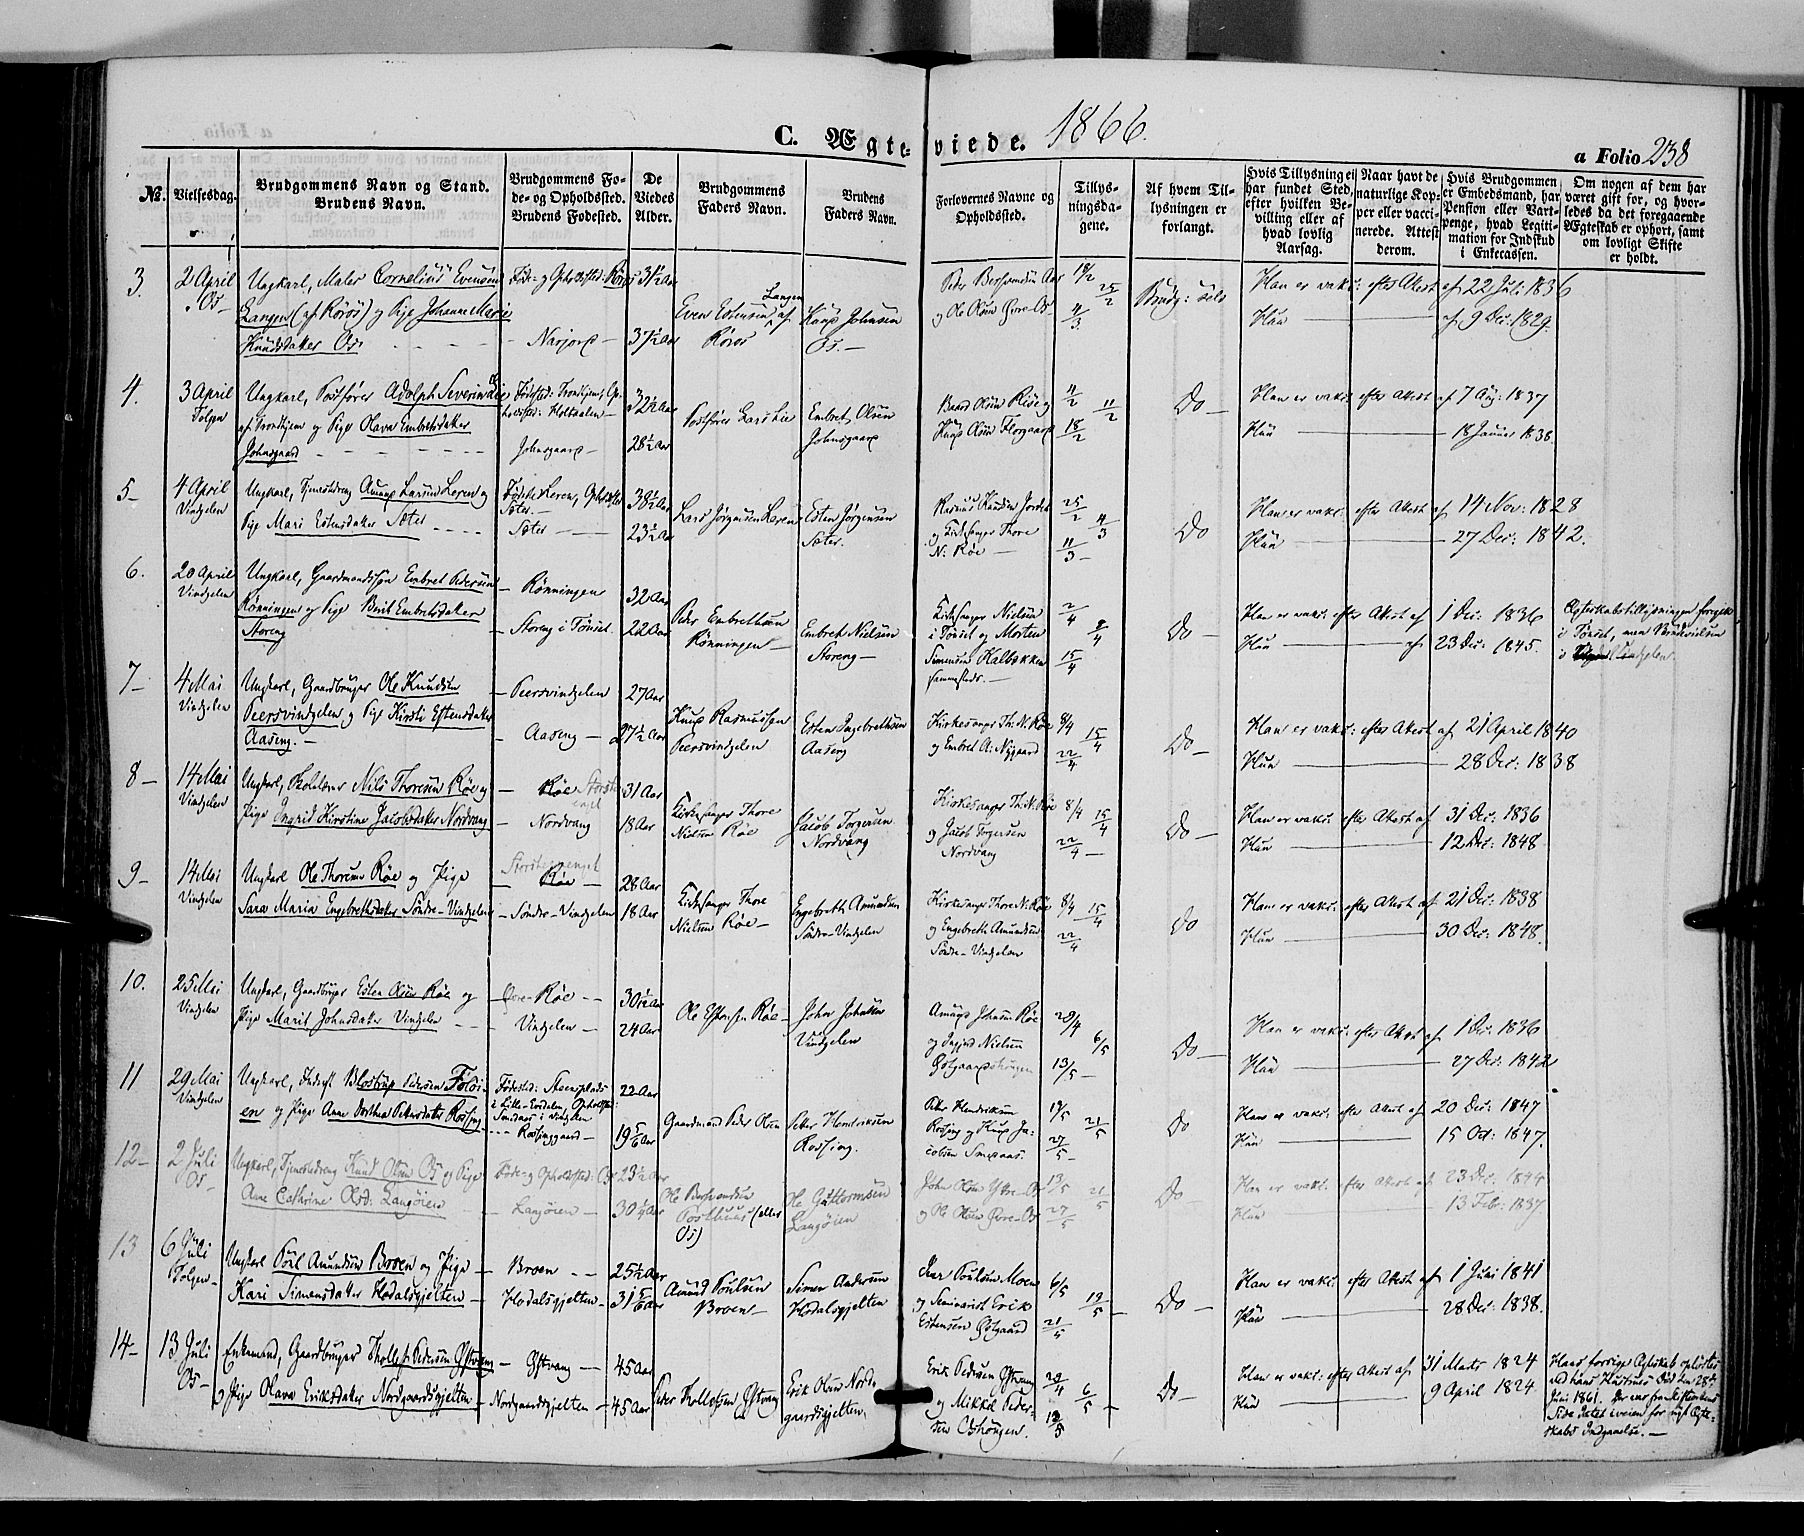 C. Ægte- viede. 1866.
a Folio 238
No. Vielsesdag. Brudgommens Navn og Stand. Brudens Navn. Brudgommens Føde- og Opholdssted. Brudens Fødested. De Viedes Alder. Brudgommens Faders Navn. Brudens Faders Navn. Forlovernes Navne og Opholdssted. Tillysningsdagene. Af hvem Tillysningen er forlangt. Hvis Tillysning ei har fundet Sted, efter hvilken Bevilling eller af hvad lovlig Aarsag. Naar havt de naturlige Kopper eller vaccinerede. Attest derom. Hvis Brudgommen er Embedsmand, har Pension eller Vartpenge, hvad Legitimation for Indskud i Enkecassen. Om nogen af dem har været gift for, og hvorledes da det foregaaende Ægteskab er ophørt, samt om lovligt Skifte er holdt.
3. 2 April Os. Ungkarl, Maler Cornelius Evensen Langen (af Rörös) og Pige Johanne Marie Knudsdatter Os. Føde- og Opholdssted: Rörös 31½ Aar Narjord 37½ Aar Even Estensen Langen af Rörös Knud Johnsen Os. Peder Bersvendsen Aas og Ole Olsen Övre-Os 18/2 25/2 4/3 Brudg: selv Han er vakc: efter Attest af 22 Juli 1836 Hun af 9 Dec: 1829.
4. 3 April Tolgen Ungkarl, Postfører Adolph Severin Lie af Trondhjem og Pige Olava Embretsdatter Johnsgaard Fødested: Trondhjem, Opholdssted: Holtaalen 32½ Aar Johnsgaard 28½ Aar Postfører Lars Lie Embret Olsen Johnsgaard Baard Olsen Rise og Knud Olsen Florgaard 4/2 11/2 18/2 Do Han er vakc: efter Attest af 7 Aug: 1837 Hun 18 Januar 1838.
5 4 April Vingelen Ungkarl, Tjenestedreng Amund Larsen Leren og Pige Mari Estensdatter Sæter Fødested: Leren, Opholdssted Sæter. 38½ Aar Sæter 23½ Aar Lars Jörgensen Leren Esten Jörgensen Sæter. Rasmus Knudsen Jordet og Kirkesanger Thore N. Röe 25/2 4/3 11/3 Do Han er vakc: efter Attest af 14 Nov: 1828 Hun 27 Dec: 1842.
6. 20 April Vingelen Ungkarl, Gaardmandssøn Embret Pedersen Rönningen og Pige Berit Embretsdatter Storeng Rönningen 32 Aar Storeng i Tönset 22 Aar Peder Embrethsen Rönningen Embret Nielsen Storeng Kirkesanger Nielsen i Tönset og Morten Simensen Kalbækken sammesteds. 2/4 8/4 15/4 Do Han er vakc: efter Attest af 1 Dec: 1836 Hun af 23 Dec: 1845. Ægteskabstillysningen foregik i Tönset, men Brudevielsen i Vingelen.
7 4 Mai Vingelen Ungkarl, Gaardbruger Ole Knudsen Peersvingelen og Pige Kirsti Estensdatter Aaseng. Peersvingelen 27 Aar Aaseng 27½ Aar Knud Rasmussen Peersvingelen Esten Ingebrethsen Aaseng Kirkesanger Th: N. Röe og Embret A: Nygaard 8/4 15/4 22/4 Do Han er vakc: efter Attest af 21 April 1840 Hun 28 Dec: 1838
8 14 Mai Vingelen Ungkarl, Skolelærer Nils Thoresen Röe og Pige Ingrid Kirstine Jacobsdatter Nordvang Röe 31 Aar Nordvang 18 Aar Kirkesanger Thore Nielsen Röe Jacob Torgersen Nordvang Kirkesanger Th: N. Röe og Jacob Torgersen Nordvang 8/4 15/4 22/4 Do Han er vakc: efter Attest af 31 Dec: 1836 Hun 12 Dec: 1848
9 14 Mai Vingelen Ungkarl Ole Thoresen Röe og Pige Sara Maria Engebrethsdatter Söndre-Vingelen Röe 28 Aar Söndre-Vingelen 18 Aar Kirkesanger Thore Nielsen Röe Engebreth Amundsen Söndre-Vingelen Kirkesanger Thore N. Röe og Engebreth Amundsen Söndre-Vingelen 8/4 15/4 22/4 Do Han er vakc: efter Attest af 21 Dec: 1838 Hun 30 Dec: 1848.
10. 25 Mai Vingelen Ungkarl, Gaardbruger Esten Olsen Röe og Pige Marit Johnsdatter Vingelen Övre-Röe 30½ Aar Vingelen 24 Aar Ole Estensen Röe John Johnsen Vingelen Amund Johnsen Röe og Ingjerd Nielsen Östgaardshaugen 29/4 6/5 13/5 Do Han er vakc: efter Attest af 1 Dec: 1836 Hun 27 Dec: 1842
11 29 Mai Vingelen Ungkarl, Inderst Blostrup Pedersen Foldien og Pige Anne Dorthea Pedersdatter Rossing Fødested: Steensplads i Lille-Elvdalen, Opholdssted: Smedaas i Vingelen 22 Aar Rossinggaard 19 5/6 Aar Gaardmand Peder Olsen Peder Hendriksen Rossing. Peder Hendriksen Rossing og Knud Jacobsen Smedaas. 19/5 21/5 27/5 Do Han er vakc: efter Attest af 20 Dec: 1847 Hun 15 Oct: 1847.
12 2 Juli Os Ungkarl, Tjenestedreng Knud Olsen Os og Pige Ane Cathrine Olsd: Langöien Føde- og Opholdssted: Os 23½ Aar Langöien 30¼ Aar Ole Bersvendsen Posthuus (eller Os) Ole Guttormsen Langöien John Olsen Ytre-Os og Ole Olsen Övre-Os 13/5 21/5 27/5 Do Han er vakc: efter Attest af 23 Dec: 1844 Hun 13 Feb: 1837
13 6 Juli Tolgen Ungkarl Poul Amundsen Broen og Pige Kari Simensdatter Hodalsgjelten Broen 25½ Aar Hodalsgjelten 31 5/6 Aar Amund Poulsen Broen Simen Andersen Hodalsgjelten Iver Poulsen Moen og Seminarist Erik Estensen Östgaard 6/5 19/5 21/5 Do Han er vakc: efter Attest af 1 Juni 1841 Hun 28 Dec: 1838.
14 13 Juli Os Enkemand, Gaardbruger Thollef Pedersen Östvang og Pige Olava Eriksdatter Nordgaardsgjelten Östvang 45 Aar Nordgaardsgjelten 45 Aar Peder Thollefsen Östvang Erik Olsen Nordgaardsgjelten. Erik Pedersen Östvang og Mikkel Pedersen Oshaugen. 29/4 6/5 13/5 Do Han er vakc: efter Attest af 31 Marts 1824 Hun 9 April 1824 Hans forrige Ægteskab oplöstes ved hans Hustrues Död den 28de Juni 1861. Der var fra Skiftets Side Intet iveien for nyt Ægteskabs Indgaaelse.